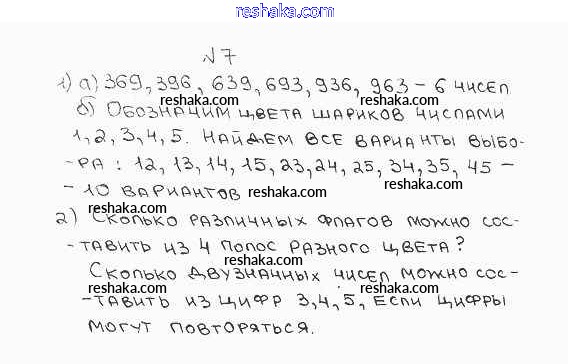 reshaka.com
№7
1) а) 369, 396, 639, 693, 936, 963 – 6 чисел
reshaka.com reshaka.com
б) Обозначим цвета шариков числами
1, 2, 3, 4, 5. Найдем все варианты выбо-
reshaka.com reshaka.com
-ра: 12, 13, 14, 15, 23, 24, 25, 34, 35, 45 –
– 10 вариантов
reshaka.com reshaka.com
2) Сколько различных флагов можно сос-
reshaka.com reshaka.com
-тавить из 4 полос разного цвета?
Сколько двузначных чисел можно сос-
reshaka.com reshaka.com
-тавить из цифр 3, 4, 5, если цифры
могут повторяться.
reshaka.com